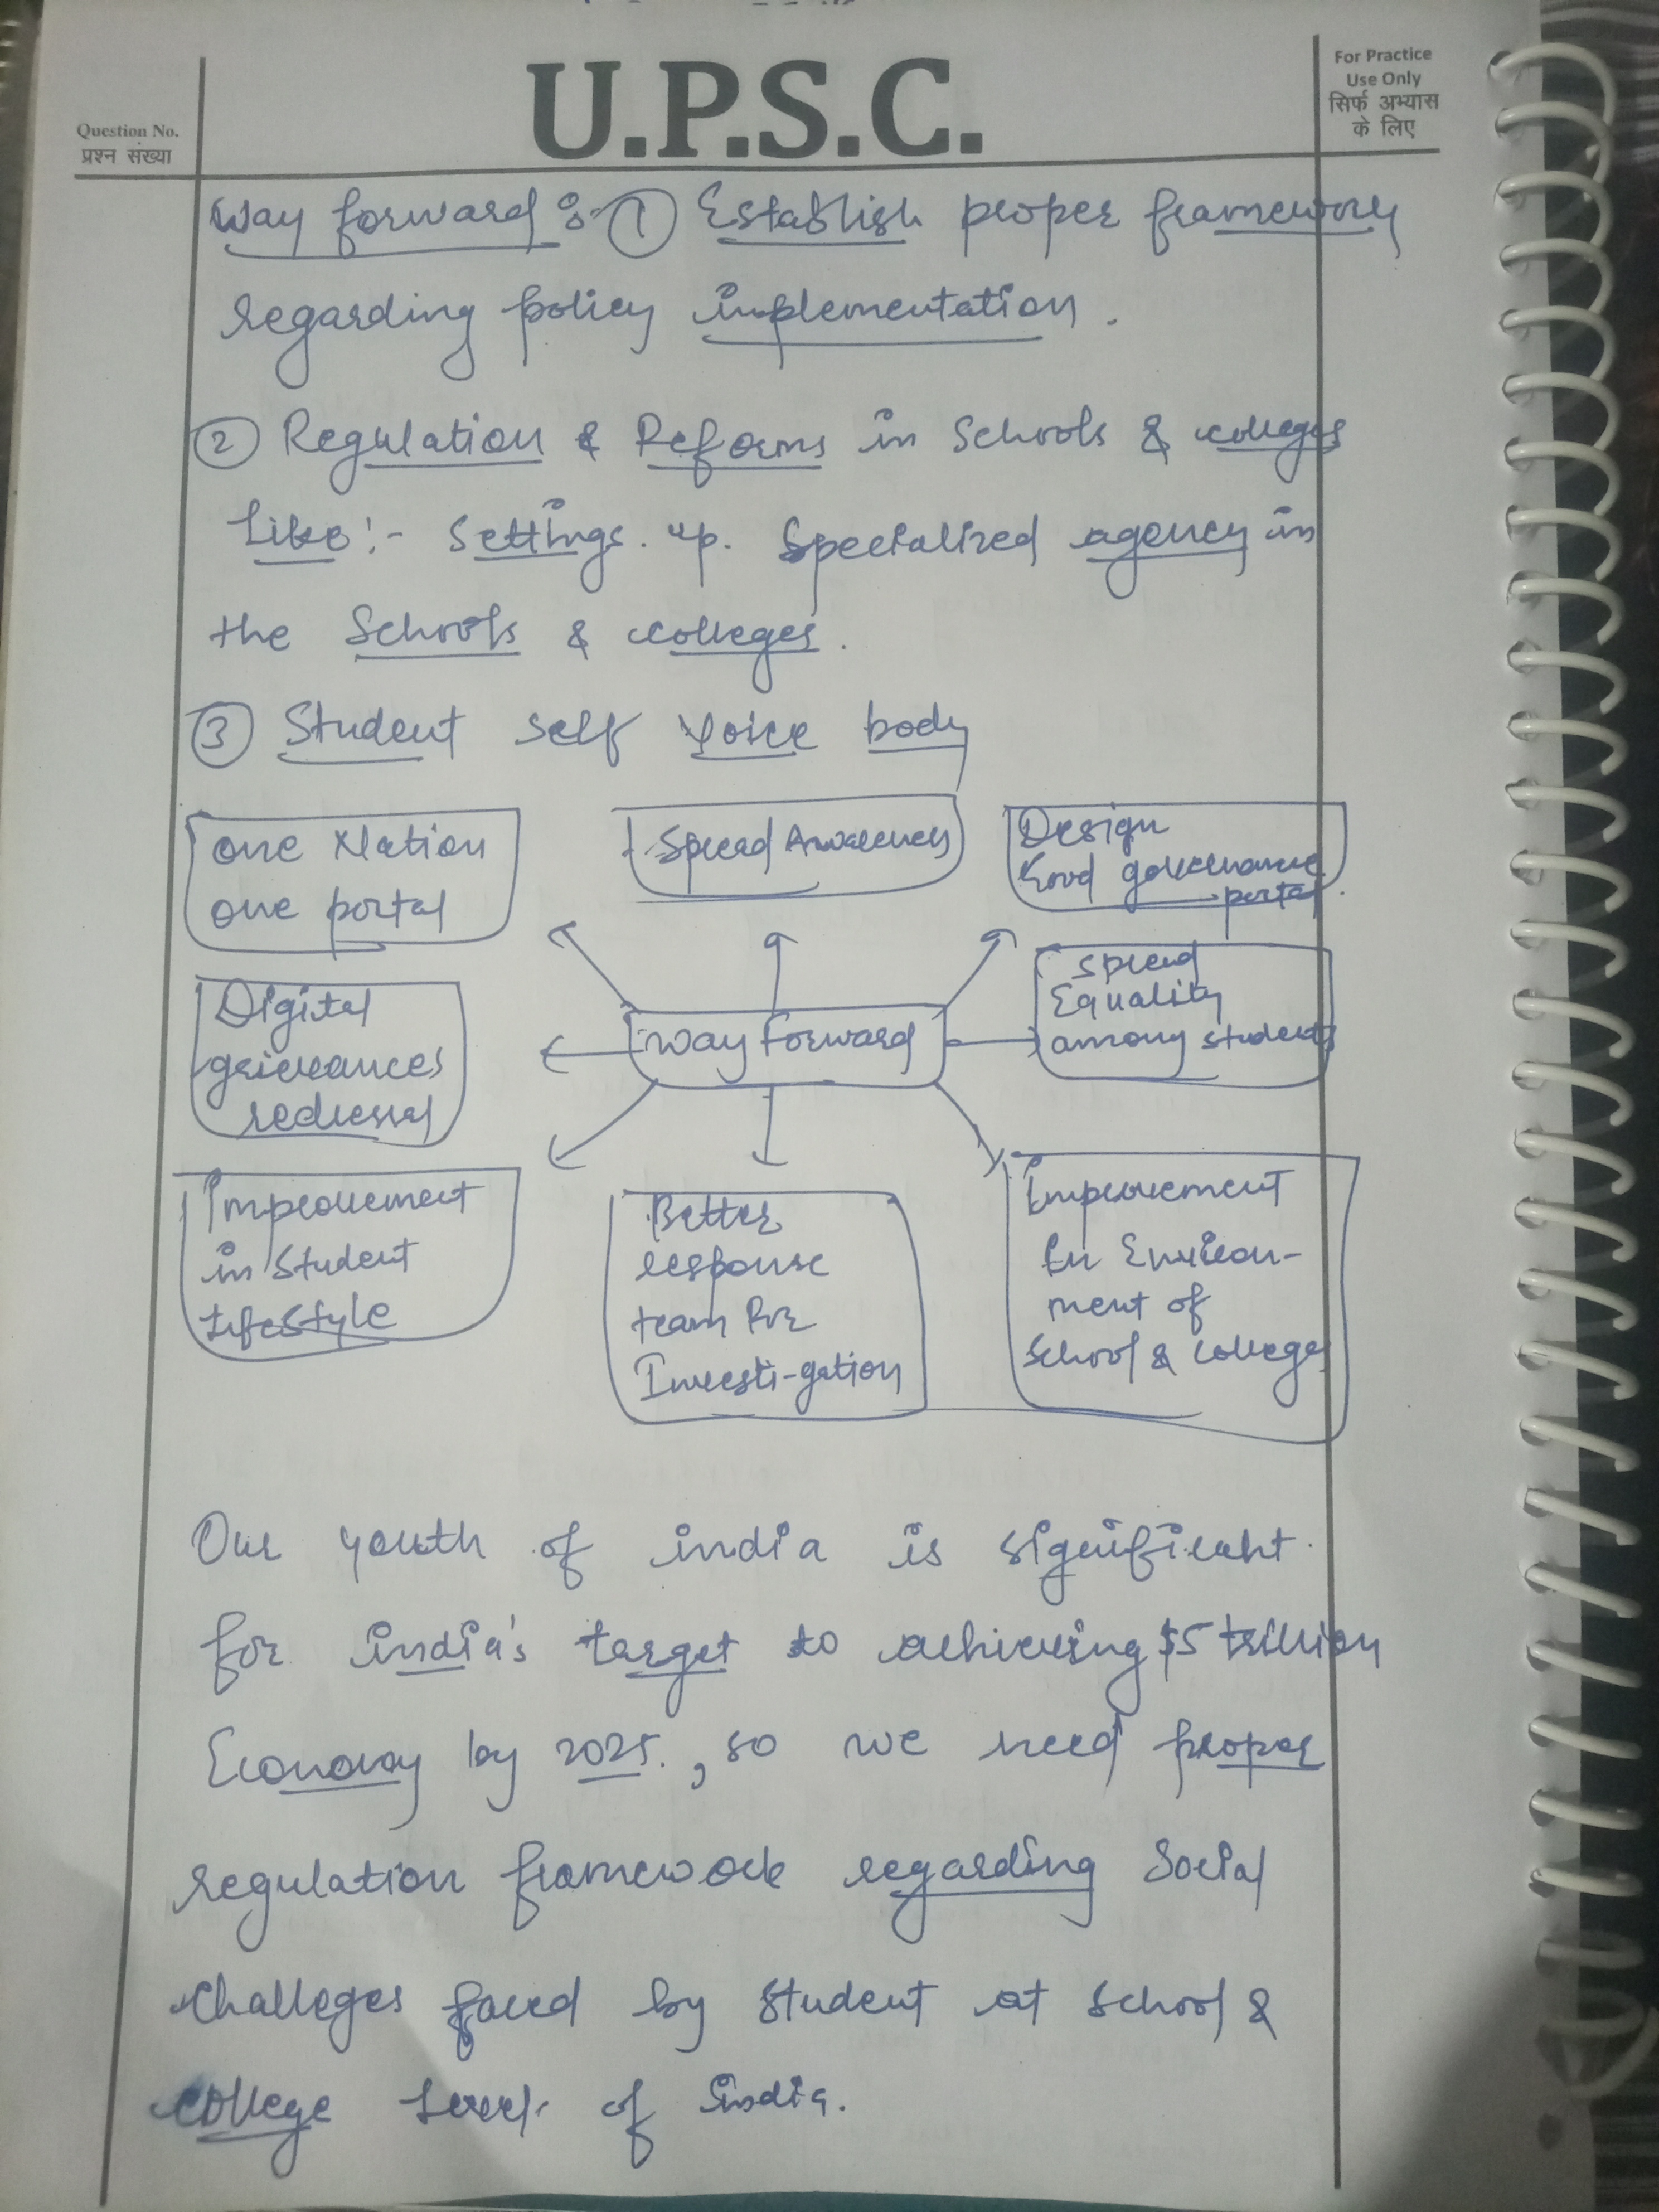 U.P.S.C.
Question No.
प्रश्न संख्या
For Practice
Use Only
सिर्फ अभ्यास
के लिए
Way forward :- ① Establish proper framework
regarding policy implementation.
② Regulation & Reforms in Schools & colleges
Like :- Settings. up. Specialized agency in
the Schools & colleges.
③ Student self voice body
One Nation
one portal
Spread Awareness
Design
Good governance
portal.
Digital
grievances
redressal
Way Forward
Spread
Equality
among students
Improvement
in Student
Lifestyle
Better
response
team for
Investi-gation
Improvement
in Environ-
ment of
School & colleges
Our youth of india is significant.
for india's target to achieving $5 trillion
Economy by 2025. , so we need proper
regulation framework regarding Social
challeges faced by student at school &
college level. of india.